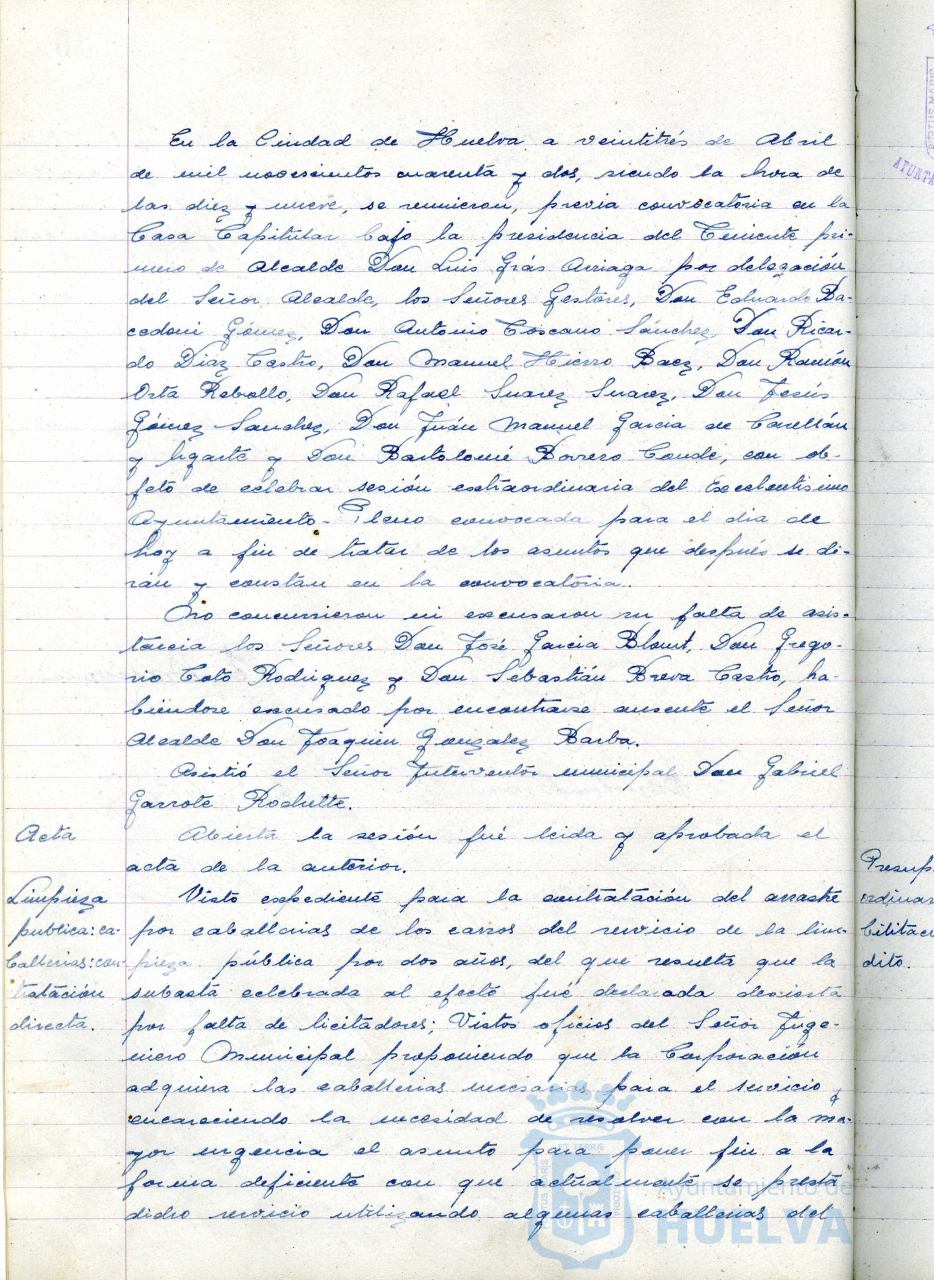 En la Ciudad de Huelva a veintitrés de Abril
de mil novecientos cuarenta y dos, siendo la hora de
las diez y nueve, se reunieron, previa convocatoria en la
Casa Capitular bajo la presidencia del Teniente pri-
mero de Alcalde Don Luis Grás Arriaga por delegación
del Señor Alcalde, los Señores Gestores, Don Eduardo Ba-
cedoni Gómez, Don Antonio Toscano Sánchez, Don Ricar-
do Diaz Castro, Don Manuel Hierro Baez, Don Ramón
Orta Rebollo, Don Rafael Suarez Suarez, Don Jesús
Gómez Sanchez, Don Juán Manuel Garcia de
y Ugarte y Don Bartolomé Borrero Conde, con ob-
jeto de celebrar sesión extraordinaria del Excelentisimo
Ayuntamiento-Pleno convocada para el dia de
hoy a fin de tratar de los asuntos que después se di-
rán y constan en la convocatoria.
No concurrieron ni excusaron su falta de asis-
tencia los Señores Don José Garcia Don Grego-
rio Toto Rodriguez y Don Sebastián Breva Castro, ha-
biendose excusado por encontrarse ausente el Señor
Alcalde Don Joaquin Gonzalez Barba.
Asistió el Señor Interventor municipal Don Gabriel
Garrote Rochette.
Acta
Abierta la sesión fué leida y aprobada el
acta de la anterior.
Limpieza
publica: ca-
ballerias: con-
tratación
directa.
Visto expediente para la contratación del arrastre
por caballerias de los carros del servicio de la lim-
pieza pública por dos años, del que resulta que la
subasta celebrada al efecto fué declarada desierta
por falta de licitadores; Vistos oficios del Señor Inge-
niero Municipal proponiendo que la Corporación
adquiera las caballerias necesarias para el servicio y
encareciendo la necesidad de resolver con la ma-
yor urgencia el asunto para poner fin a la
forma deficiente con que actualmente se presta
dicho servicio utilizando algunas caballerias del
Presup.
ordinar
bilitac
dito.
Ayuntamiento de
HUELVA